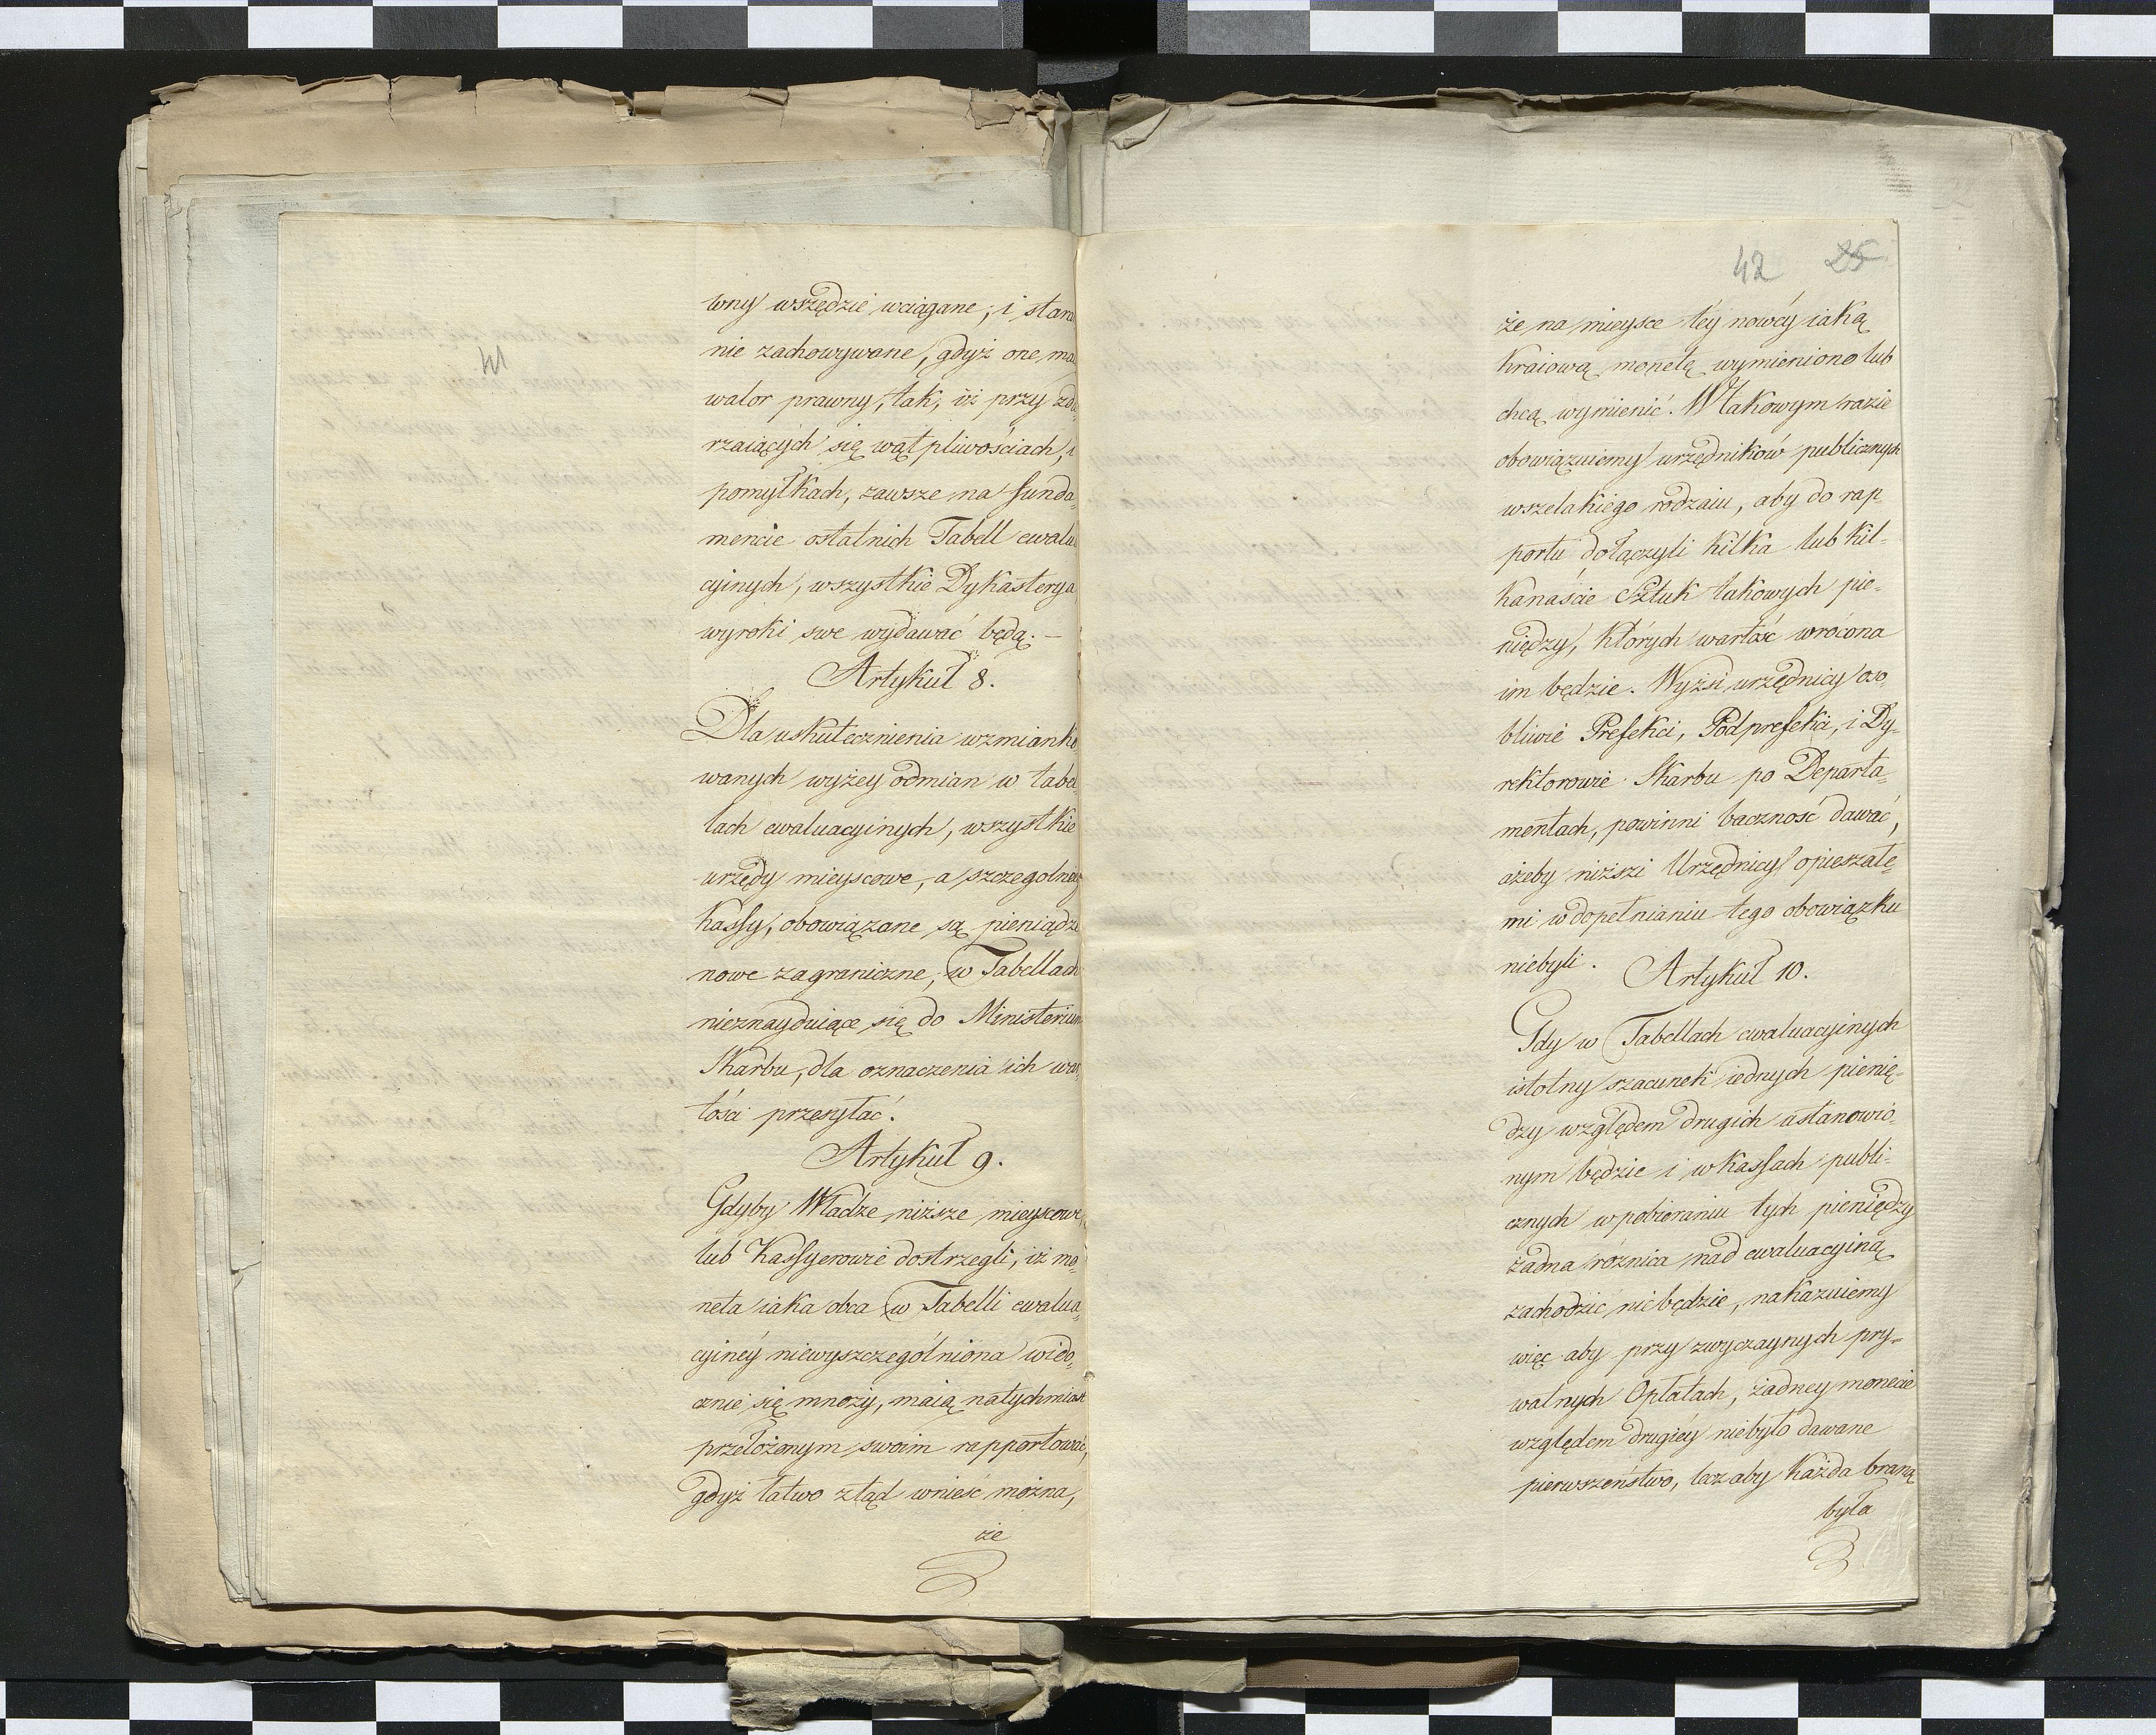 wny wszędzie wciągane, i stara
nie zachowywane, gdyż one ma
walor prawny, tak, iż przy zda
rzaiących się wątpliwościach, i
pomyłkach, zawsze na funda=
mencie ostatnich Tabell ewalua
cyinych, wszystkie Dykasterya
wyroki swe wydawać będą. —
Artykuł 8.
Dla uskutecznienia wzmianko
wanych wyżey odmian w tabel
lach ewaluacyinych, wszystkie
urzędy mieyscowe, a szczegolniey
Kassy, obowiązane są pieniądze
nowe zagraniczne, w Tabellach
nieznayduiące się do Ministerium
Skarbu, dla oznaczenia ich war
tości przesyłać.
Artykuł 9.
Gdyby Władze niższe mieyscowe,
lub Kassyerowie dostrzegli, iż mo=
neta iaka obca w Tabelli ewalua=
cyinéy niewyszczególniona wido=
cznie się mnoży, maią natychmiast
przełożonym swoim rapportować,
gdyż łatwo ztąd wnieść można,
że
42 25
że na mieysce téy nowéy iaką
kraiową monetą wymieniono lub
chcą wymienić. W takowym razie
obowiązuiemy urzędników publicznych
wszelakiego rodzaiu, aby do rap
portu dołączyli kilka lub kil=
kanaście Sztuk takowych pie=
niędzy, których wartość wrócona
im będzie. Wyżsi urzędnicy oso
bliwie Prefekci, Podprefekci, i Dy=
rektorowie Skarbu po Departa=
mentach, powinni baczność dawać,
ażeby niżsi Urzędnicy opieszałe=
mi w dopełnianiu tego obowiązku
niebyli.
Artykuł 10.
Gdy w Tabellach ewaluacyinych
istotny szacunek iednych pienię=
dzy względem drugich ustanowio=
nym będzie i w Kassach publi=
cznych w pobieraniu tych pieniędzy
żadna różnica nad ewaluacyiną
zachodzić niebędzie, nakazuiemy
więc aby przy zwyczaynych pry=
watnych Opłatach, żadney monecie
względem drugiéy niebyło dawane
pierwszeństwo, lecz aby każda braną
była